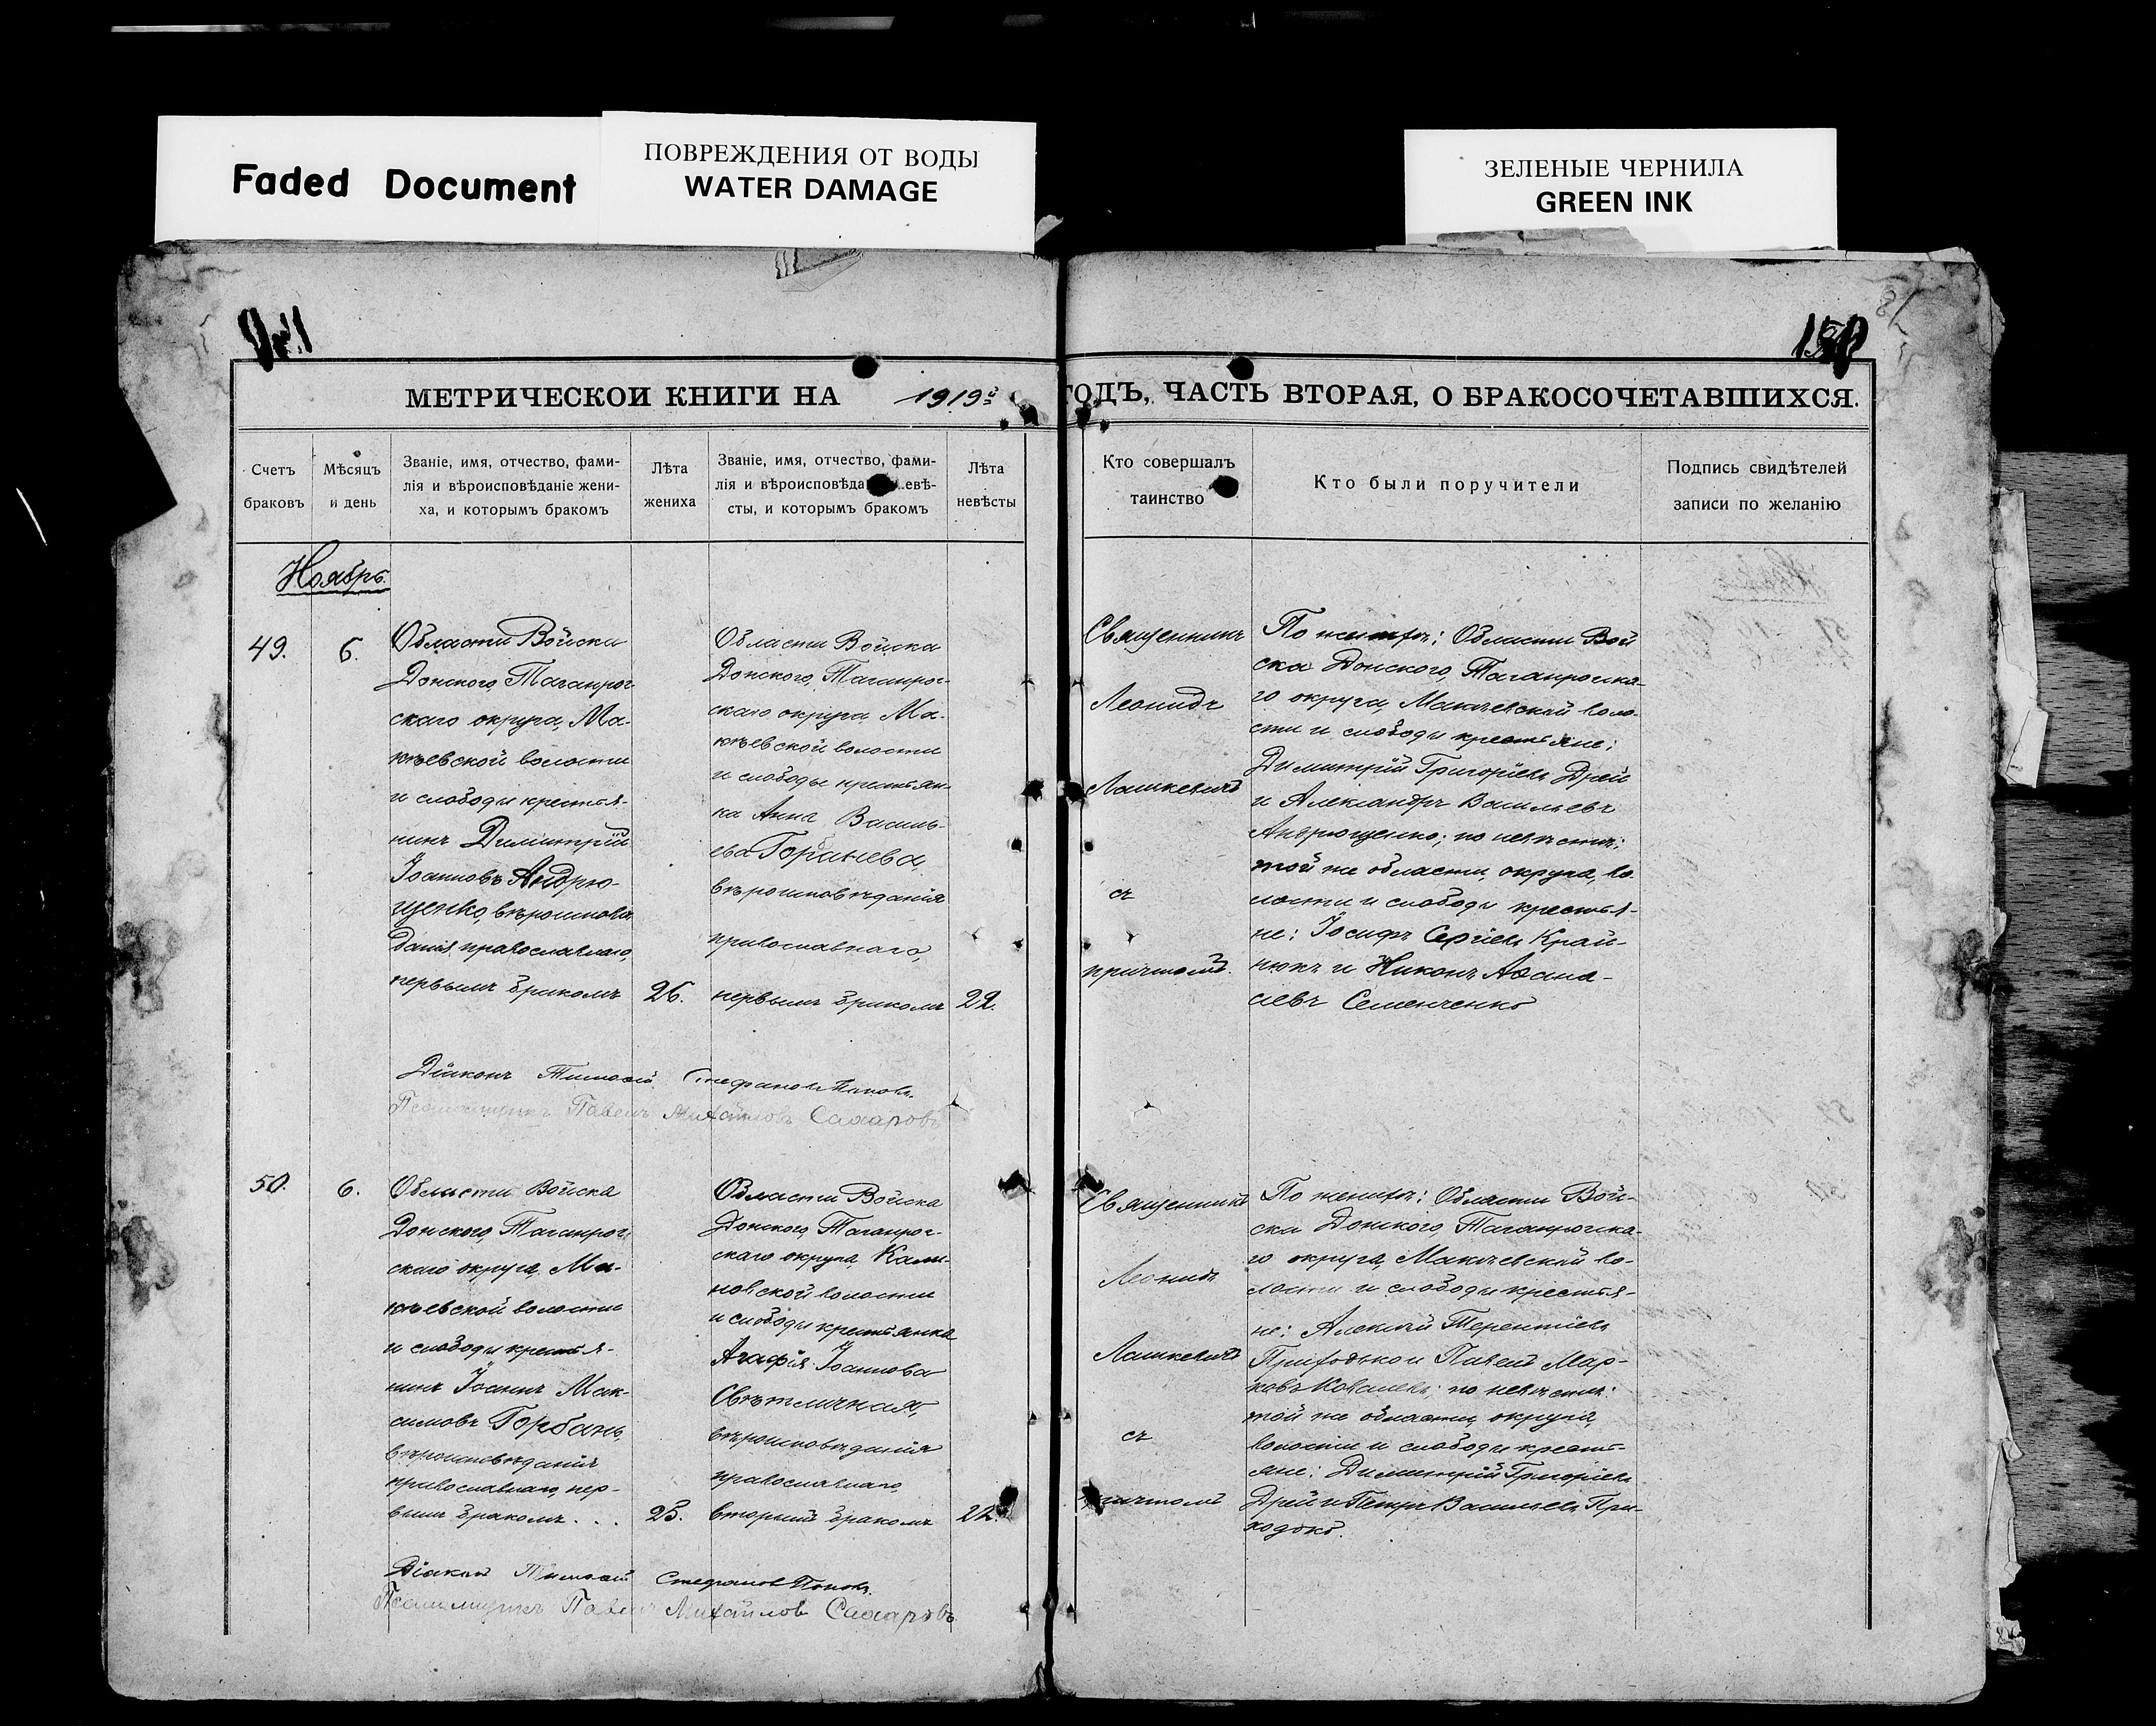 Faded Document
ПОВРЕЖДЕНИЯ ОТ ВОДЫ
WATER DAMAGE
ЗЕЛЕНЫЕ ЧЕРНИЛА
GREEN INK
МЕТРИЧЕСКОЙ КНИГИ НА 1919й
ГОДЪ, ЧАСТЬ ВТОРАЯ, О БРАКОСОЧЕТАВШИХСЯ.
Счетъ
браковъ
Мѣсяцъ
и день
Званіе, имя, отчество, фами-
лія и вѣроисповѣданіе жени-
ха, и которымъ бракомъ
Лѣта
жениха
Званіе, имя, отчество, фами-
лія и вѣроисповѣда евѣ-
сты, и которымъ бракомъ
Лѣта
невѣсты
Кто совершалъ
таинство
Кто были поручители
Подпись свидѣтелей
записи по желанію
Ноябрь.
49.
6.
Области Войска
Донского, Таганрог-
скаго округа, Ма-
кѣевской волости
и слободы крестья-
нинъ Димитрій
Іоанновъ Андрю-
щенко, вѣроисповѣ-
данія православнаго,
первымъ бракомъ
26.
Области Войска
Донского, Таганрог-
скаго округа, Ма-
кѣевской волости
и слободы крестьян-
ка Анна Василь-
ева Горбанева,
вѣроисповѣданія
православнаго,
первымъ бракомъ
22.
Священникъ
Леонидъ
Лашкевичъ
съ
причтомъ.
По женихѣ: Области Вой
ска Донского, Таганрогска-
го округа, Макѣевской воло-
сти и слободы крестьяне:
Димитрій Григорьевъ Дрей
и Александръ Васильевъ
Андрющенко; по невѣстѣ:
той же области, округа, во-
лости и слободы крестья-
не: Іосифъ Сергіевъ Край-
нюкъ и Никонъ Аѳана-
сіевъ Семенченко
Діаконъ Тимоѳей Стефановъ Поповъ.
Псаломщикъ Павелъ Михайловъ Сахаровъ
50.
6.
Области Войска
Донского, Таганрог-
скаго округа, Ма-
кѣевской волости
и слободы крестья-
нинъ Іоаннъ Мак-
симовъ Горбань,
вѣроисповѣданія
православнаго, пер-
вымъ бракомъ...
25.
Области Войска
Донского, Таганрог-
скаго округа, Кали-
новской волости
и слободы крестьянка
Агафія Іоаннова
Свѣтличная,
вѣроисповѣданія
православнаго
вторымъ бракомъ
22.
Священникъ
Леонидъ
Лашкевичъ
съ
причтомъ
По женихѣ: Области Вой-
ска Донского, Таганрогска-
го округа, Макѣевской во-
лости и слободы крестья-
не: Алексѣй Терентіевъ
Приходько и Павелъ Мар-
ковъ Ковалевъ; по невѣстѣ:
той же области, округа,
волости и слободы кресть-
яне: Димитрій Григорьевъ
Дрей и Петръ Васильевъ При-
ходько.
Діаконъ Тимоѳей Стефановъ Поповъ.
Псаломщикъ Павелъ Михайловъ Сахаровъ